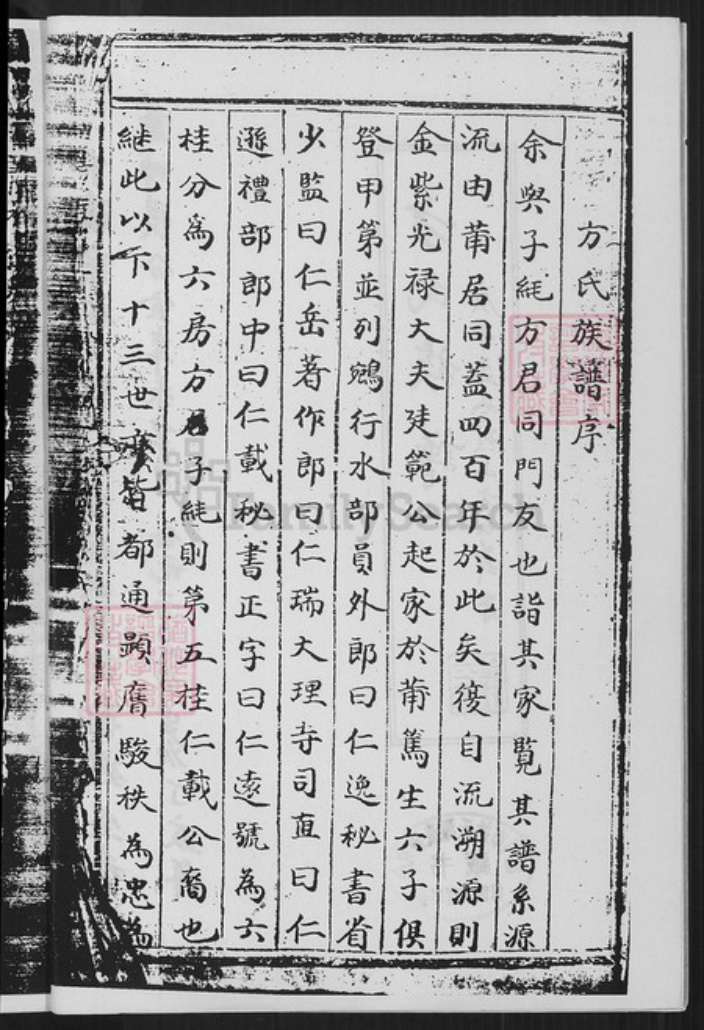 方氏族譜序
余與子純方君同門友也詣其家覽其譜系源
流由莆居同葢四百年於此矣後自流溯源則
金紫光禄大夫廷範公起家於莆篤生六子俱
登甲第並列鵷行水部員外郎曰仁逸秘書省
少監曰仁岳著作郎曰仁瑞大理寺司直曰仁
遜禮部郎中曰仁載秘書正字曰仁遠號為六
桂分為六房方君子純則第五桂仁載公裔也
継此以下十三世皆都通顯膺駿秩為忠為
FamilySearch